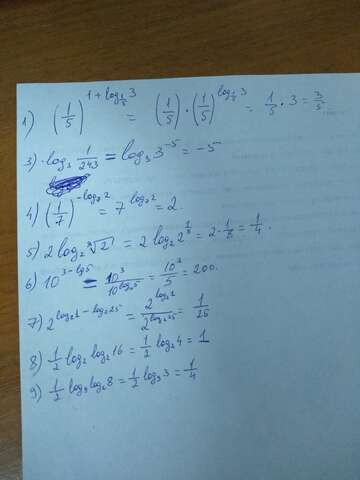 1) (1/5)^(1+log_(1/5) 3) = (1/5)·(1/5)^(log_(1/5) 3) = 1/5·3 = 3/5.
3) log_3 1/243 = log_3 3^(-5) = -5
4) (1/7)^(-log_7 2) = 7^(log_7 2) = 2.
5) 2log_2 ⁸√2 = 2log_2 2^(1/8) = 2·1/8 = 1/4.
6) 10^(3-lg5) = 10^3/10^(log5) = 10^3/5 = 200.
7) 2^(log_2 1 - log_2 25) = 2^(log_2 1)/2^(log_2 25) = 1/25
8) 1/2 log_2 log_2 16 = 1/2 log_2 4 = 1
9) 1/2 log_9 log_2 8 = 1/2 log_9 3 = 1/4